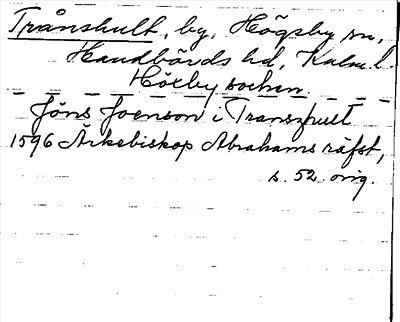 Trånshult, by, Högsby sn,
Handbörds hd, Kalm. l.
Höxby sochen.
Jöns Joenson i Transhult
1596 Ärkebiskop Abrahams räfst,
s. 52. orig.